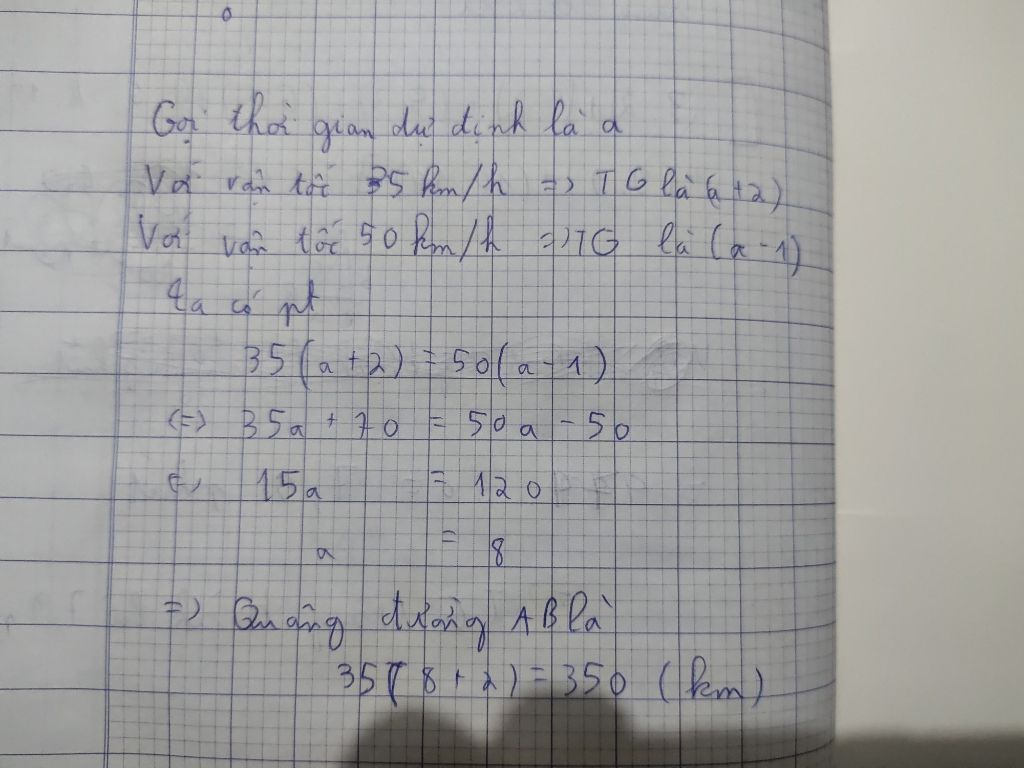 Gọi thời gian dự định là a
Với vận tốc 35 km/h => TG là (a+2)
Với vận tốc 50 km/h => TG là (a-1)
Ta có pt
35(a+2) = 50(a-1)
<=> 35a + 70 = 50a - 50
<=> 15a = 120
a = 8
=> Quãng đường AB là
35(8+2) = 350 (km)